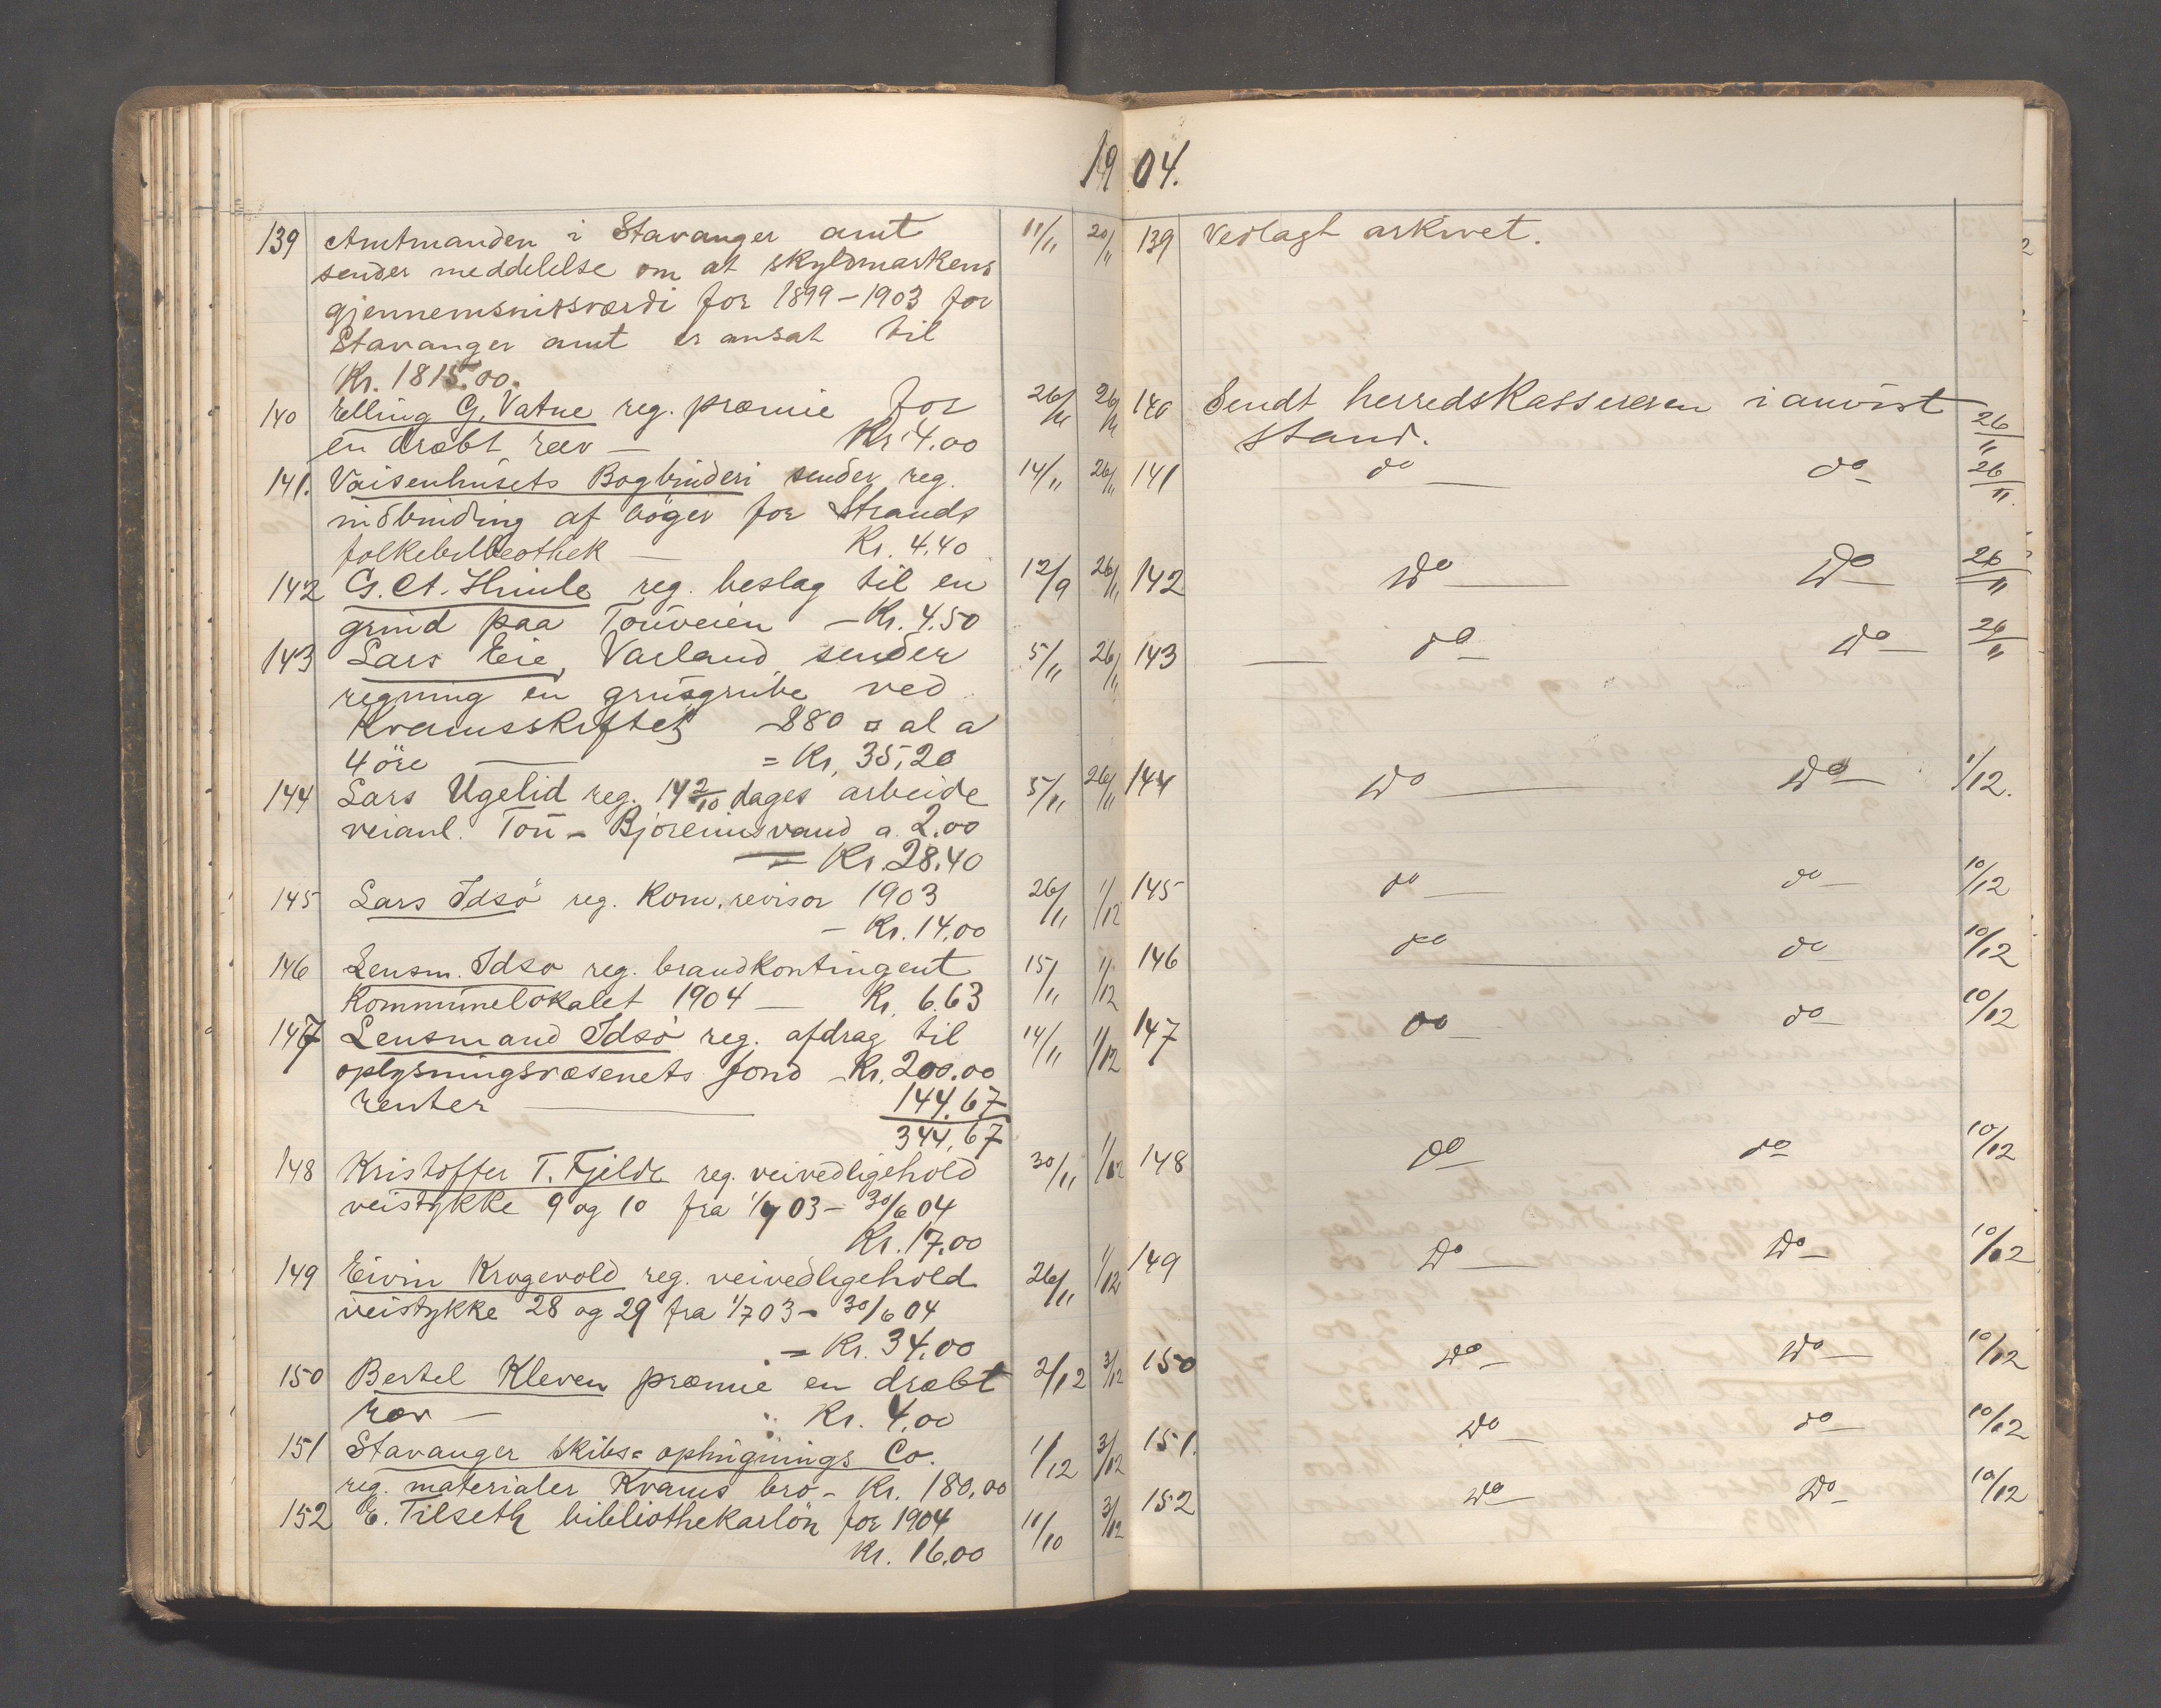 1904.
139 Amtmanden i Stavanger amt 11/11 20/11
sender meddelelse om at skyldmarkens
gjennemsnitsværdi for 1899-1903 for
Stavanger amt er ansat til
Kr. 1815.00.
140 Elling G. Vatne reg. præmie for 26/11 26/11
en dræbt ræv — Kr. 4.00
141. Vaisenhusets Bogbinderi sender reg. 14/11 26/11
indbinding af bøger for Strands
folkebibliothek — Kr. 4.40
142 G. A. Hinle reg. beslag til en 12/9 26/11
grind paa Touveien — Kr. 4.50
143 Lars Eie, Varland sender 5/11 26/11
regning en grusgrube ved
Kvamsskiftet 880 □ al a
4 öre — = Kr. 35,20
144 Lars Ugelid reg. 14 2/10 dages arbeide 5/11 26/11
veianl. Tou - Björeimsvand a. 2.00
= Kr. 28.40
145 Lars Idsö reg. Kom. revisor 1903 26/11 1/12
— Kr. 14.00
146 Lensm. Idsø reg. brandkontingent 15/11 1/12
Kommunelokalet 1904 — Kr. 6.63
147 Lensmand Idsö reg. afdrag til 14/11 1/12
oplysningsvæsenets fond — Kr. 200.00
renter — 144.67
344,67
148 Kristoffer T. Fjelde reg. veivedligehold 30/11 1/12
veistykke 9 og 10 fra 1/7 03 - 30/6 04
Kr. 17.00
149 Eivin Krogevold reg. veivedligehold 26/11 1/12
veistykke 28 og 29 fra 1/7 03 - 30/6 04
= Kr. 34.00
150 Bertel Kleven præmie en dræbt 2/12 3/12
ræv — Kr. 4,00
151 Stavanger Skibs=ophugnings Co. 1/12 3/12
reg. materialer Kvams bro - Kr. 180,00
152 E. Tilseth bibliothekarlön for 1904 11/10 3/12
Kr. 16.00
139 Vedlagt arkivet.
140 Sendt herredskassereren i anvist
stand. 26/11
141 do — do — 26/11
142 Do — Do — 26/11
143 — do — do — 26/11
144 Do — Do — 1/12.
145 do — do — 10/12
146 do — do — 10/12
147 do — do — 10/12
148 do — do — 10/12
149 Do — Do — 10/12
150 Do — Do — 10/12
151. Do — do — 10/12
152 Do — Do — 10/12